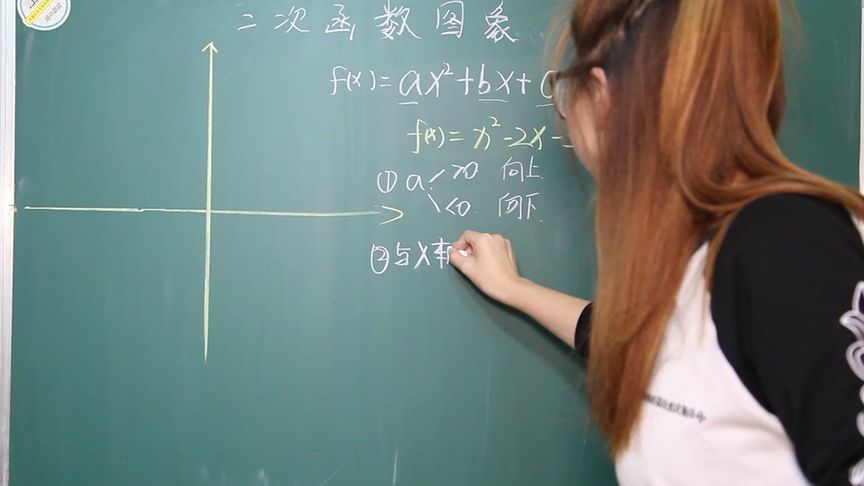 二次函数图象
f(x)=ax²+bx+
f(x)=x²-2x-
① a >0 向上
<0 向下
②与X